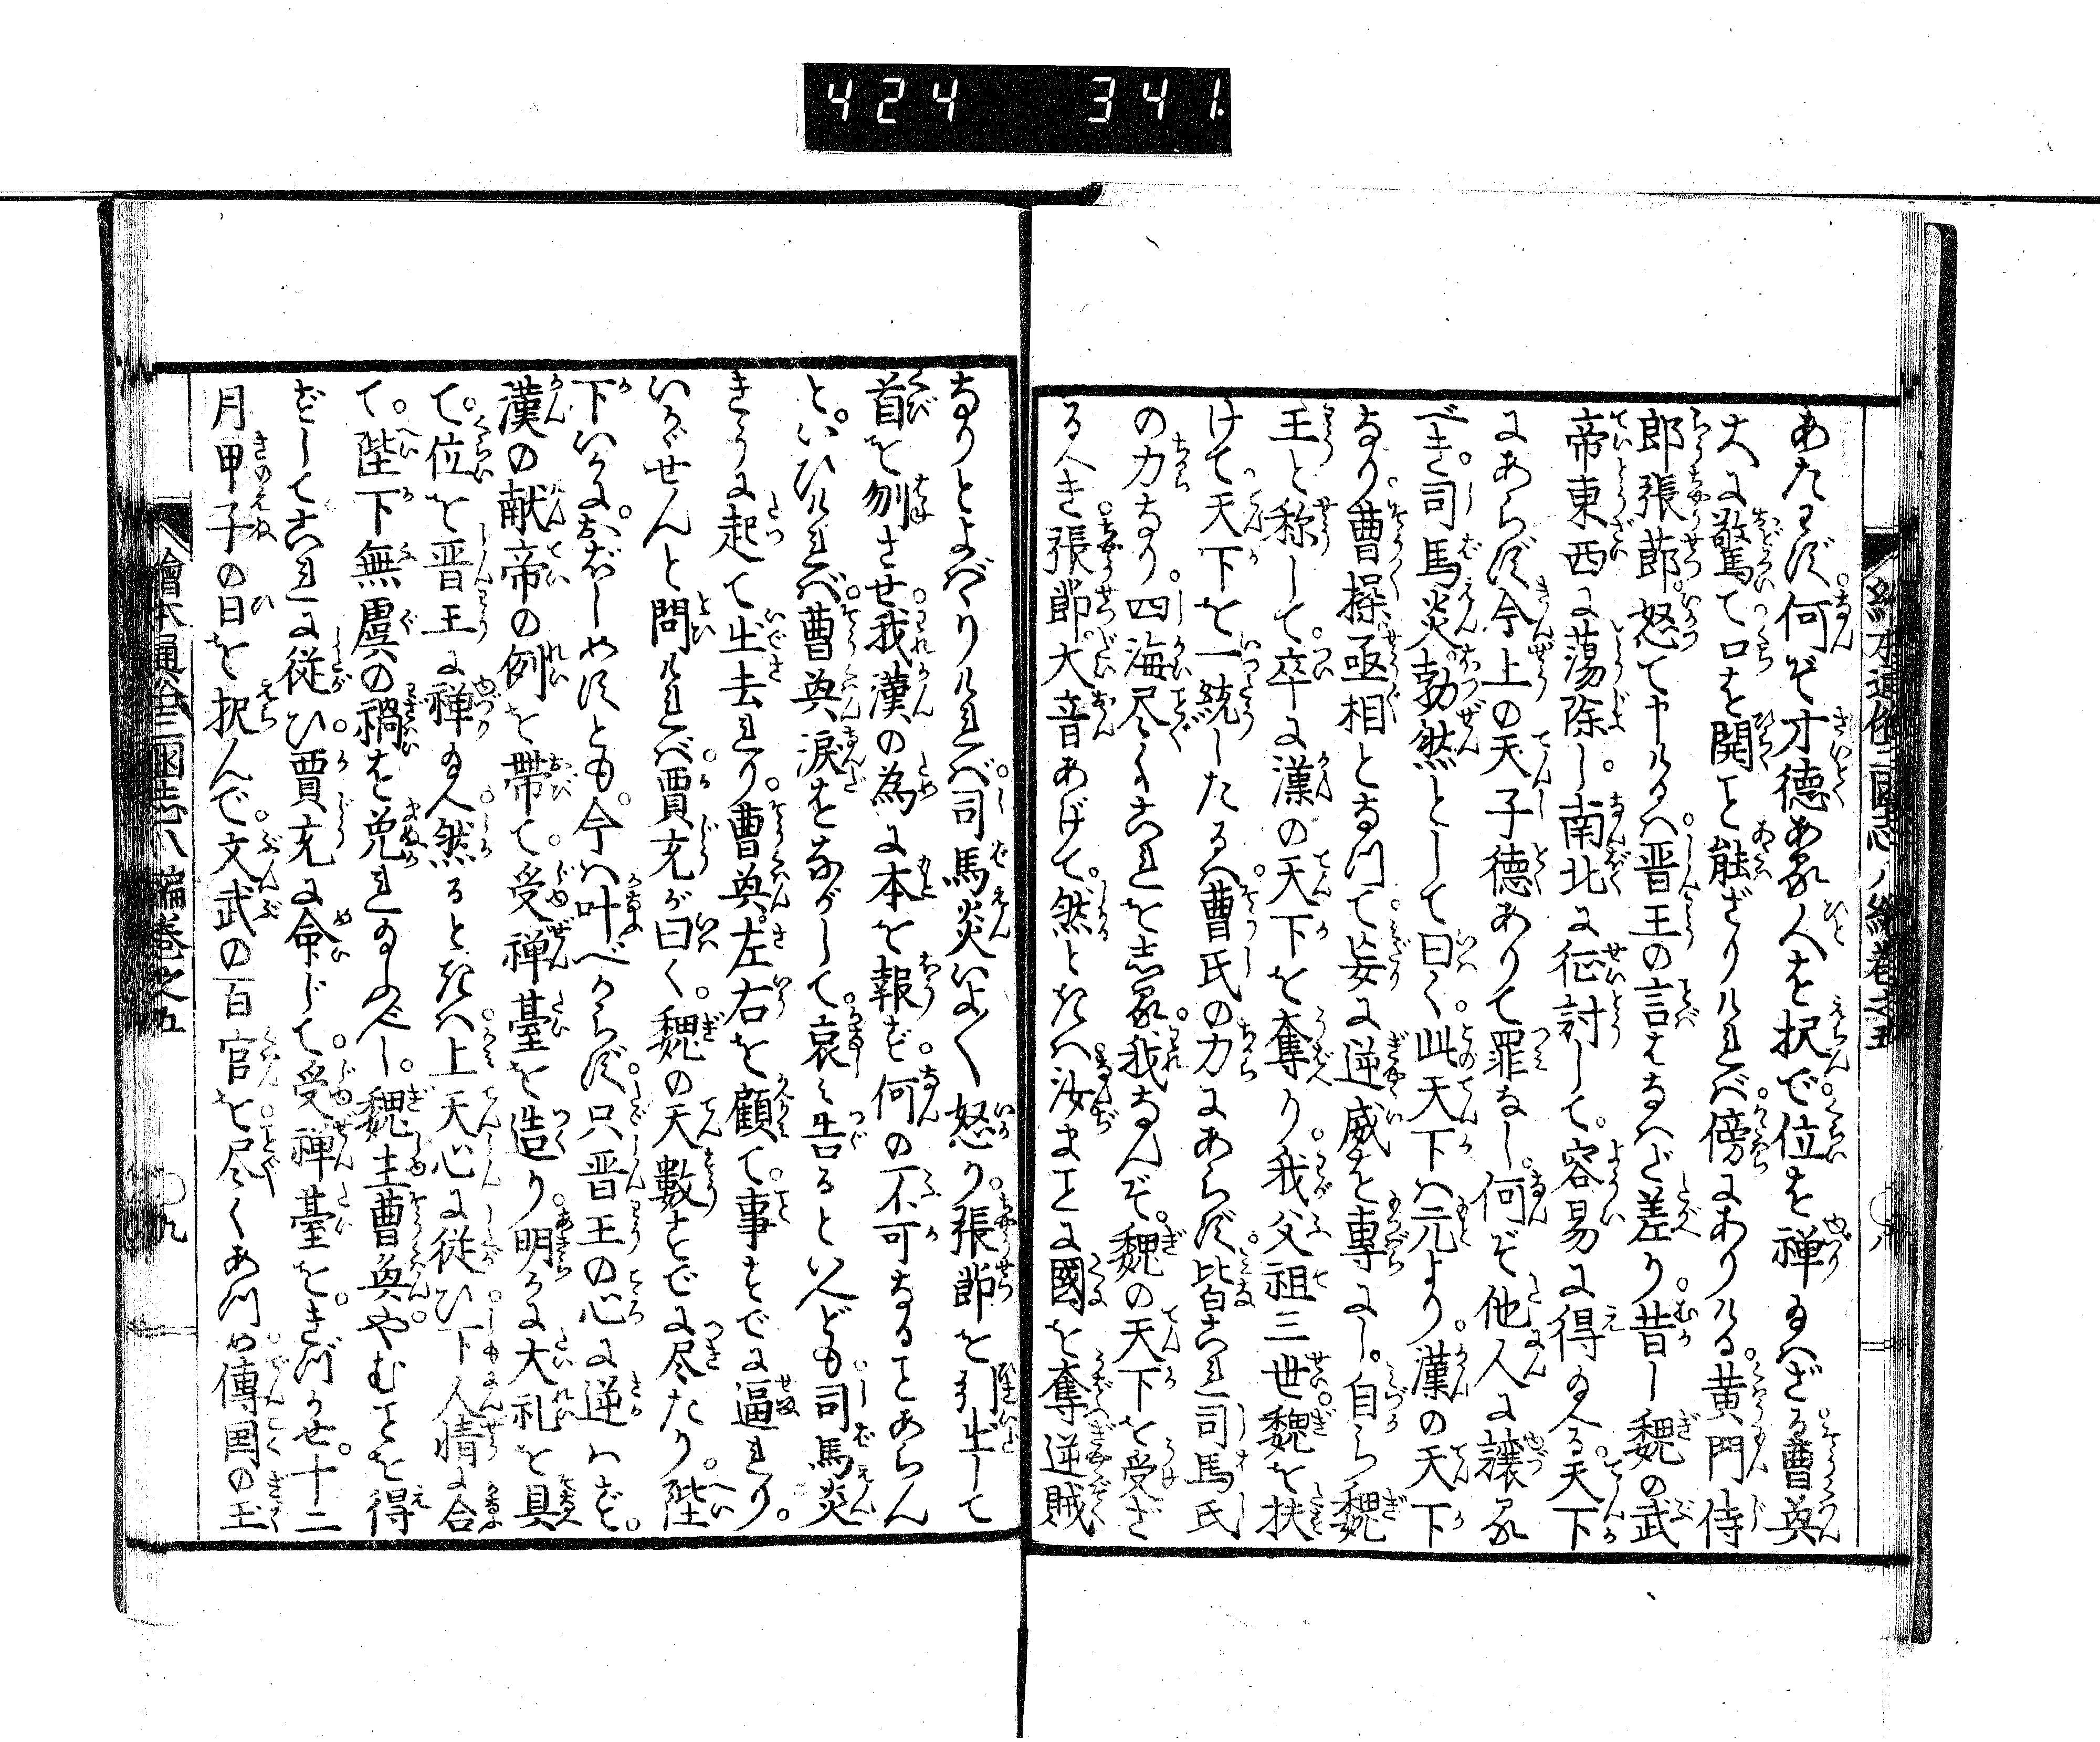 424 341.
繪本通俗三國志八編巻之五
あたはず何ぞ才徳ある人を択で位を禅り給へざる曹奐
大に驚て口を開こと能ざりければ傍にありける黄門侍
郎張節怒て申けるハ晋王の言をなハだ差り昔し魏の武
帝東西に蕩除し南北に征討して容易に得給る天下
にあらず今上の天子徳ありて罪なし何ぞ他人に譲る
べき司馬炎勃然として曰く此天下ハ元より漢の天下
なり曹操丞相となつて妄に逆威を専にし自ら魏
王と称して卒に漢の天下を奪り我父祖三世魏を扶
けて天下を一統したるハ曹氏の力にあらず皆これ司馬氏
の力なり四海尽くこれを志る我なんぞ魏の天下を受ざ
るべき張節大音あげて然ときハ汝まことに國を奪逆賊
なりとよばハりければ司馬炎いよ〱怒り張節を引出して
首を刎させ我漢の為に本を報ず何の不可なることあらん
といひければ曹奐涙をながして哀ミ告るといへども司馬炎
きかうに起て出去れり曹奐左右を顧て事すでに逼れり
いかゞせんと問ければ賈充が曰く魏の天數すでに尽たり陛
下いかにおぼしめすとも今ハ叶べからず只晋王の心に逆はず
漢の献帝の例を帯て受禅臺を造り明かに大礼を具
て位を晋王に禅給へ然るときハ上天心に従ひ下人情に合
て陛下無虞の禍を免れ給ふべし魏主曹奐やむことを得
ずしてこれに従ひ賈充に命じて受禅臺をきづかせ十二
月甲子の日を択んで文武の百官を尽くあつめ傳国の玉
繪本通俗三國志八編巻之五
〇九